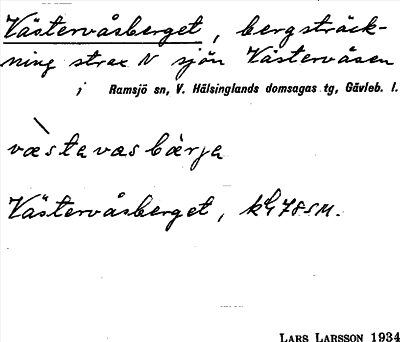 Västervåsberget, bergsträck-
ning strax N sjön Västervåsen
i Ramsjö sn, V. Hälsinglands domsagas tg, Gävleb. l.
væ̀stavasbærja
Västervåsberget,
LARS LARSSON 1934